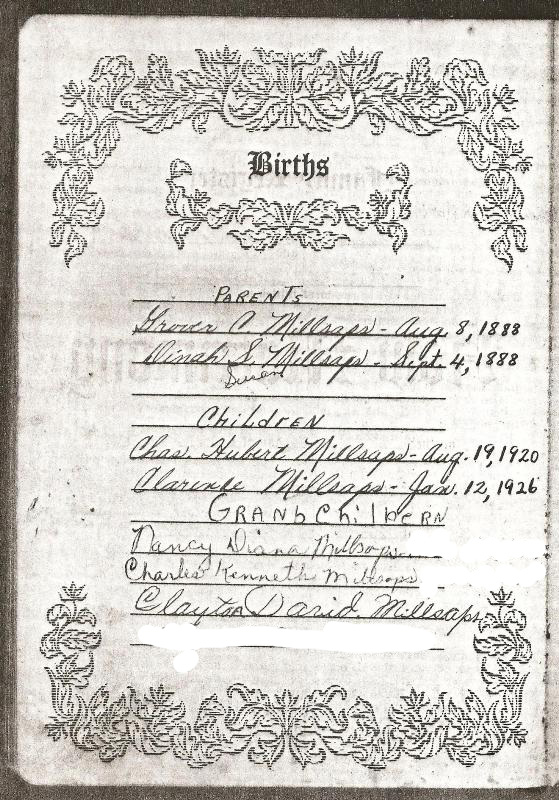 Births
PARENTS
Grover C. Millsaps - Aug 8, 1888
Dinah S. Millsaps - Sept. 4, 1888
Susan
Children
Chas. Hubert Millsaps - Aug. 19, 1920
Clarence Millsaps - Jan. 12, 1926
GRANbChilDERN
Nancy Diana Millsaps
Charles Kenneth Millsaps
Clayton David Millsaps